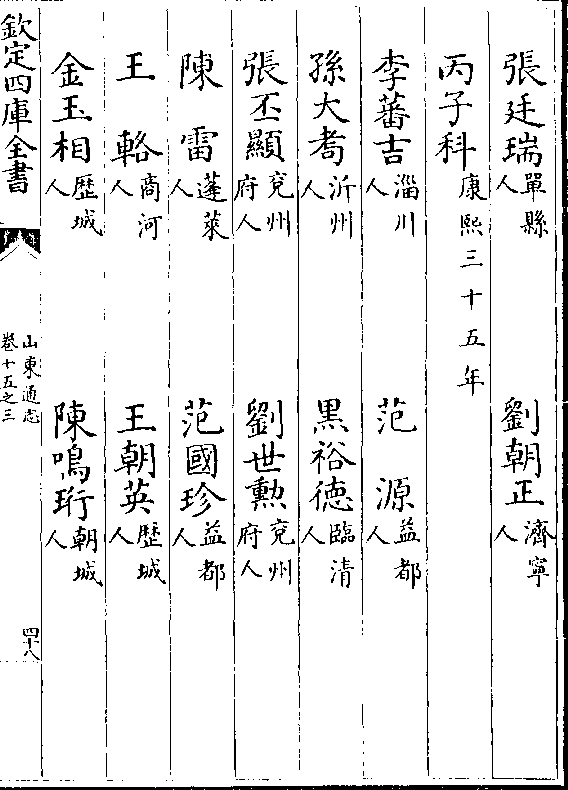 張廷瑞單縣人　劉朝正濟寧人
丙子科康熙三十五年
李蕃吉淄川人　范源益都人
孫大耉沂州人　黑裕德臨清人
張丕顯兗州府人　劉世勲兗州府人
陳雷蓬萊人　范國珍益都人
王輅商河人　王朝英歷城人
金玉相歷城人　陳鳴珩朝城人
欽定四庫全書　山東通志卷十五之三　四十八